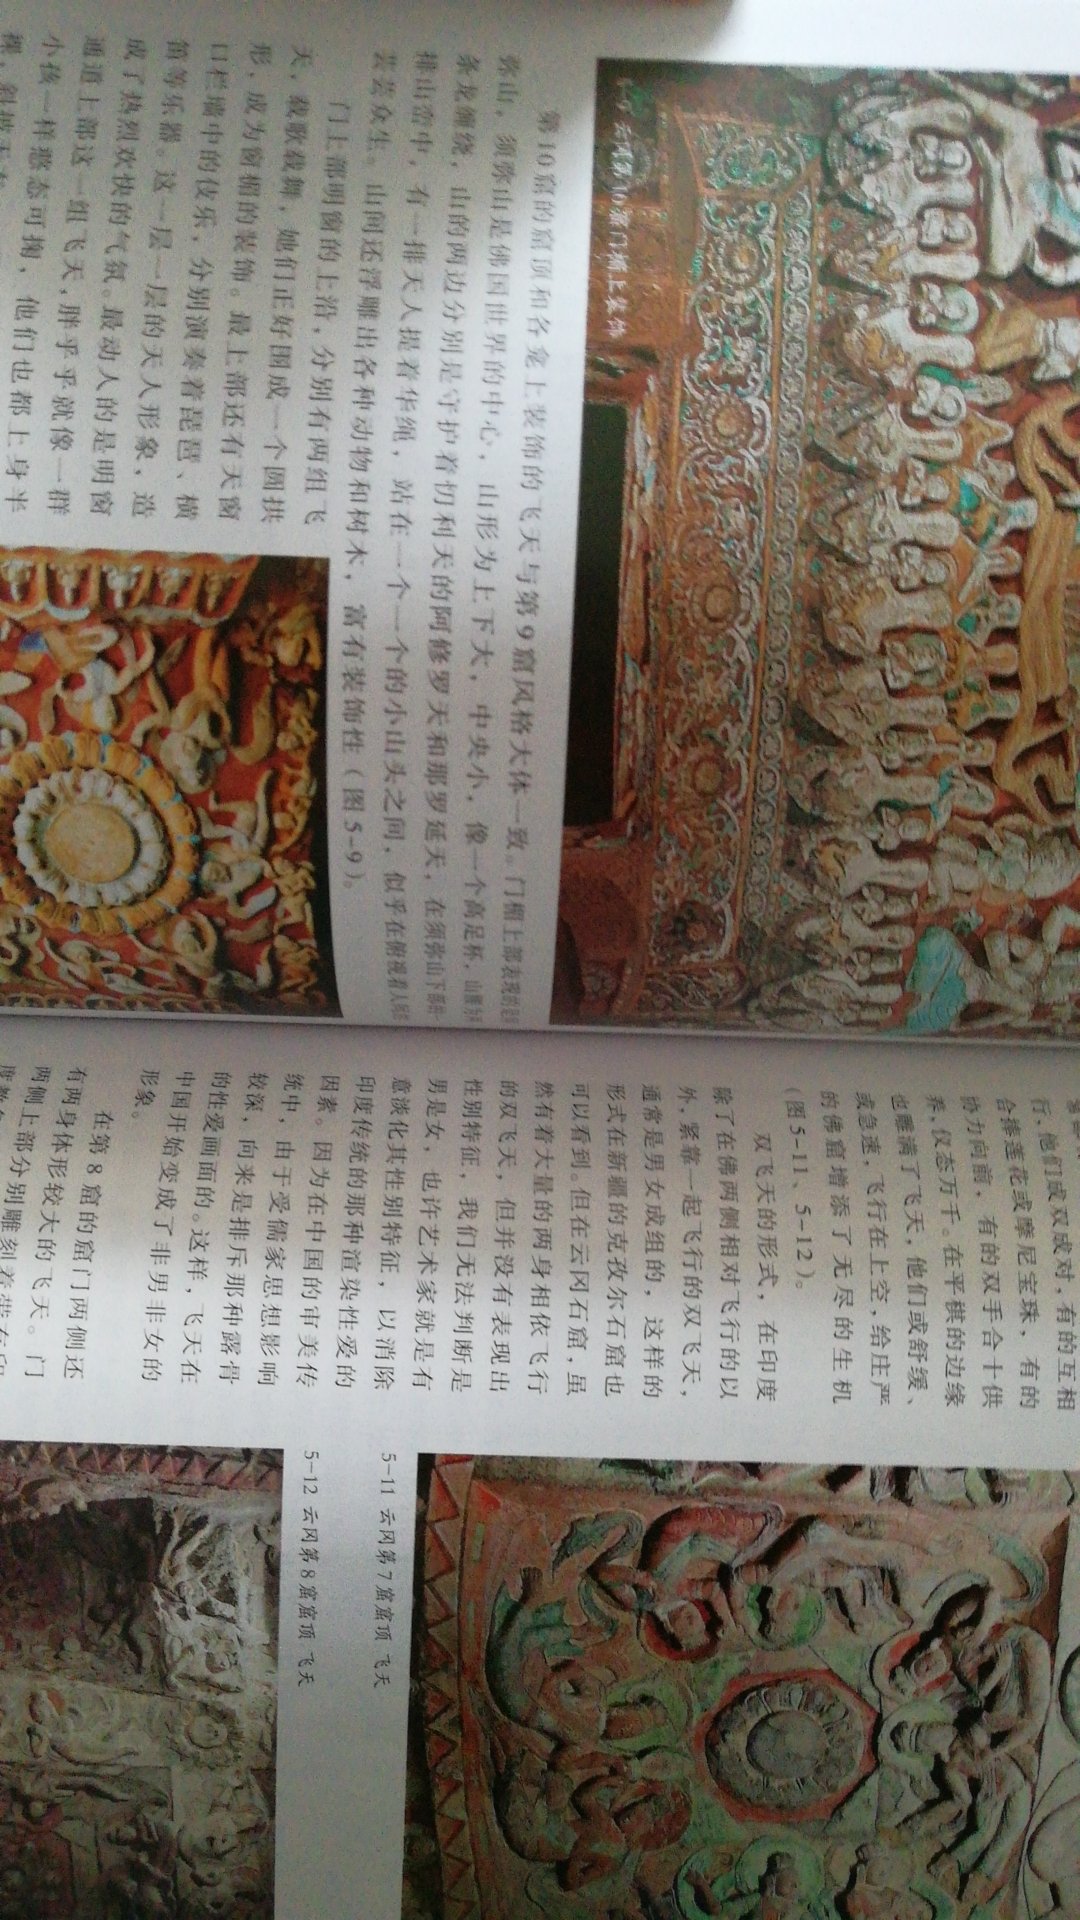 5-9 云冈第10窟门楣上装饰
第10窟的窟顶和各龛上装饰的飞天与第9窟风格大体一致。门楣上部表现的是须
弥山。须弥山是佛国世界的中心，山形为上下大，中央小，像一个高足杯，山腰
条龙缠绕，山的两边分别是守护着忉利天的阿修罗天和那罗延天。在须弥山下部的一
排山峦中，有一排天人提着华绳，站在一个一个的小山头之间，似乎在俯视着人间的
芸芸众生。山间还浮雕出各种动物和树木，富有装饰性（图5-9）。
门上部明窗的上沿，分别有两组飞
天，载歌载舞，她们正好围成一个圆拱
形，成为窗楣的装饰。最上部还有天窗
口栏墙中的伎乐，分别演奏着琵琶、横
笛等乐器。这一层一层的天人形象，造
成了热烈欢快的气氛。最动人的是明窗
通道上部这一组飞天，胖乎乎就像一群
小孩一样憨态可掬，他们也都上身半
裸，斜披
行，他们成双成对，有的互相
合捧莲花或摩尼宝珠，有的
协力向前，有的双手合十供
养，仪态万千。在平棋的边缘
也雕满了飞天，他们或舒缓、
或急速，飞行在上空，给庄严
的佛窟增添了无尽的生机
（图5-11、5-12）。
双飞天的形式，在印度
除了在佛两侧相对飞行的以
外，紧靠一起飞行的双飞天，
通常是男女成组的，这样的
形式在新疆的克孜尔石窟也
可以看到。但在云冈石窟，虽
然有着大量的两身相依飞行
的双飞天，但并没有表现出
性别特征，我们无法判断是
男是女，也许艺术家就是有
意淡化其性别特征，以消除
印度传统的那种渲染性爱的
因素。因为在中国的审美传
统中，由于受儒家思想影响
较深，向来是排斥那种露骨
的性爱画面的。这样，飞天在
中国开始变成了非男非女的
形象。
在第8窟的窟门两侧还
有两身体形较大的飞天。门
两侧上部分别雕刻着带有印
5-11 云冈第7窟窟顶 飞天
5-12 云冈第8窟窟顶 飞天